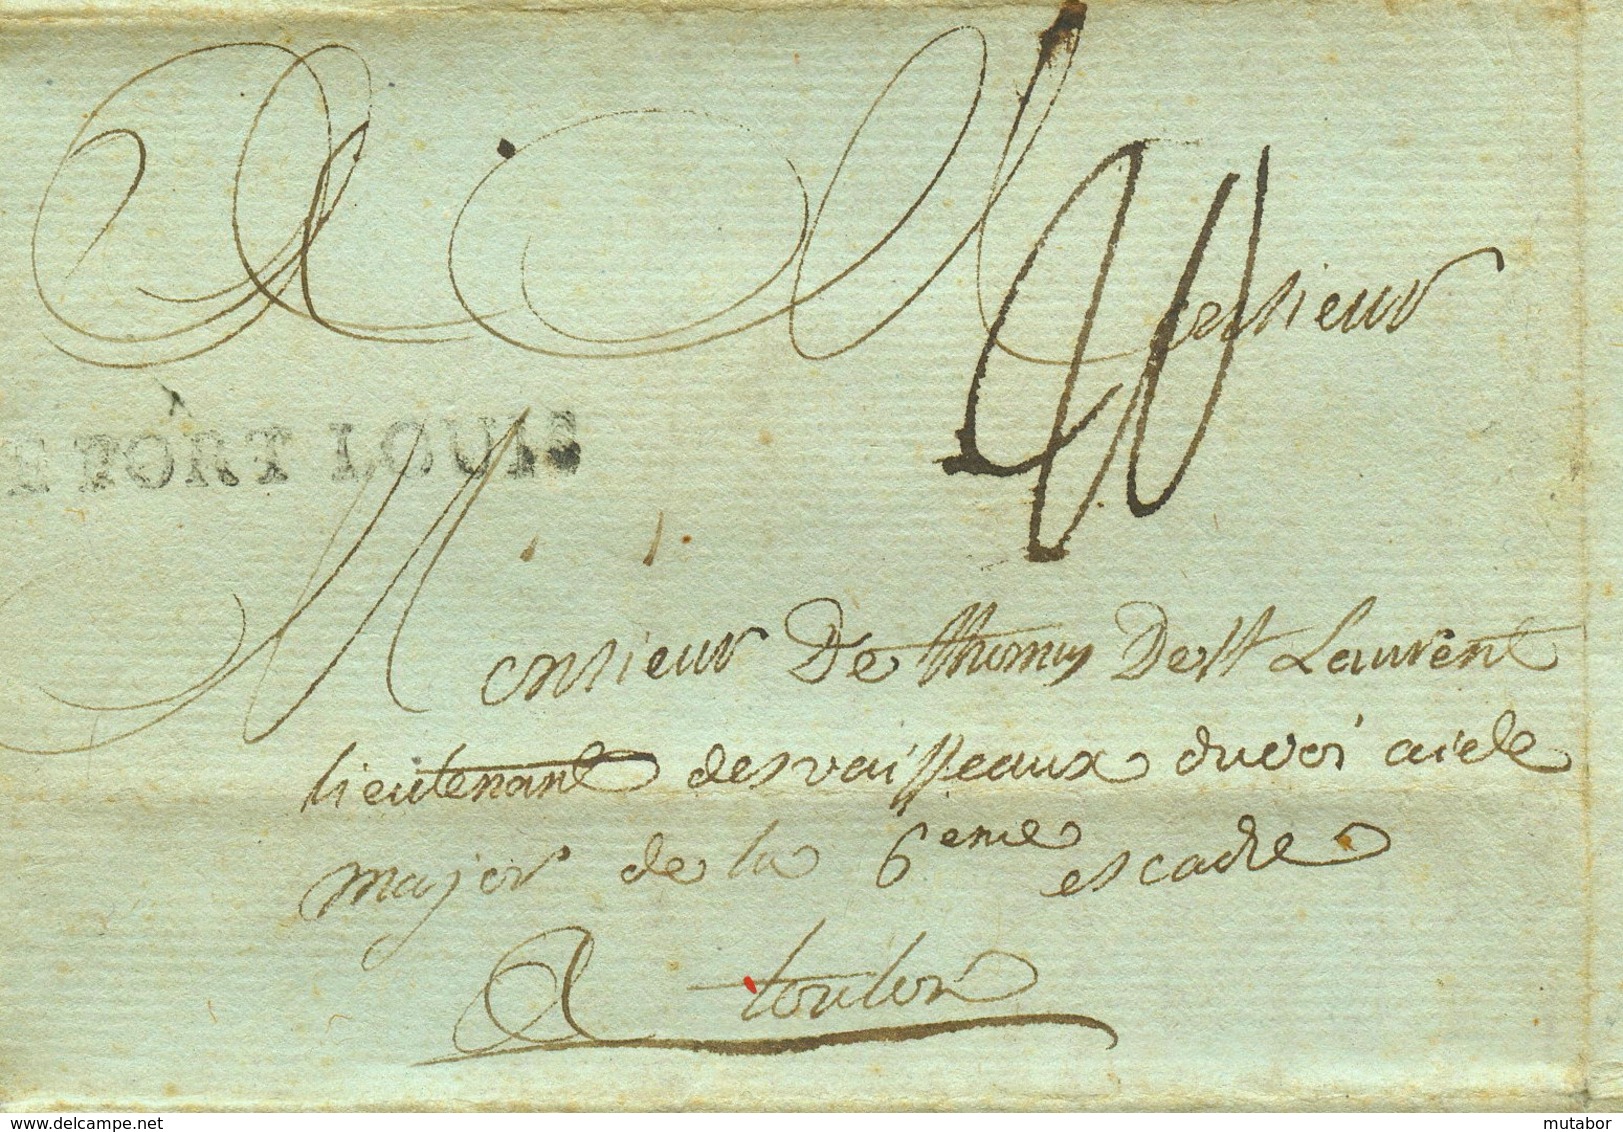 A Monsieur
20
LE PORT LOUIS
Monsieur De thomas De St Laurent
lieutenant des vaisseaux du roi aide
major de la 6eme escadre
A toulon
delcampe.net
mutabor